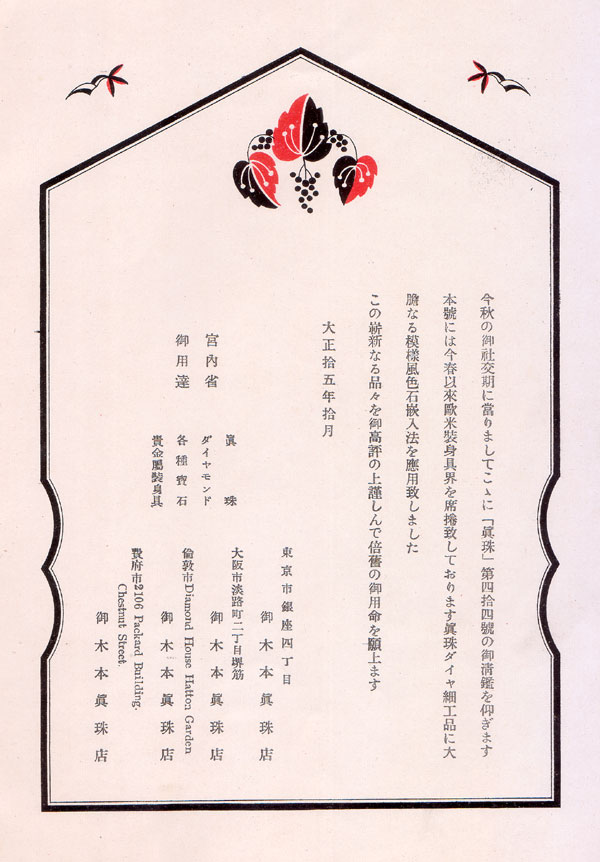 今秋の御社交期に當りましてこゝに「眞珠」第四拾四號の御淸鑑を仰ぎます
本號には今春以來歐米裝身具界を席捲致しております眞珠ダイヤ細工品に大
膽なる模樣風色石嵌入法を應用致しました
この嶄新なる品々を御高評の上謹しんで倍舊の御用命を願上ます
大正拾五年拾月
宮內省
御用達
眞珠
ダイヤモンド
各種寶石
貴金屬裝身具
東京市銀座四丁目
御木本眞珠店
大阪市淡路町二丁目堺筋
御木本眞珠店
倫敦市Diamond House Hatton Garden
御木本眞珠店
費府市2106 Packard Building.
Chestnut Street.
御木本眞珠店